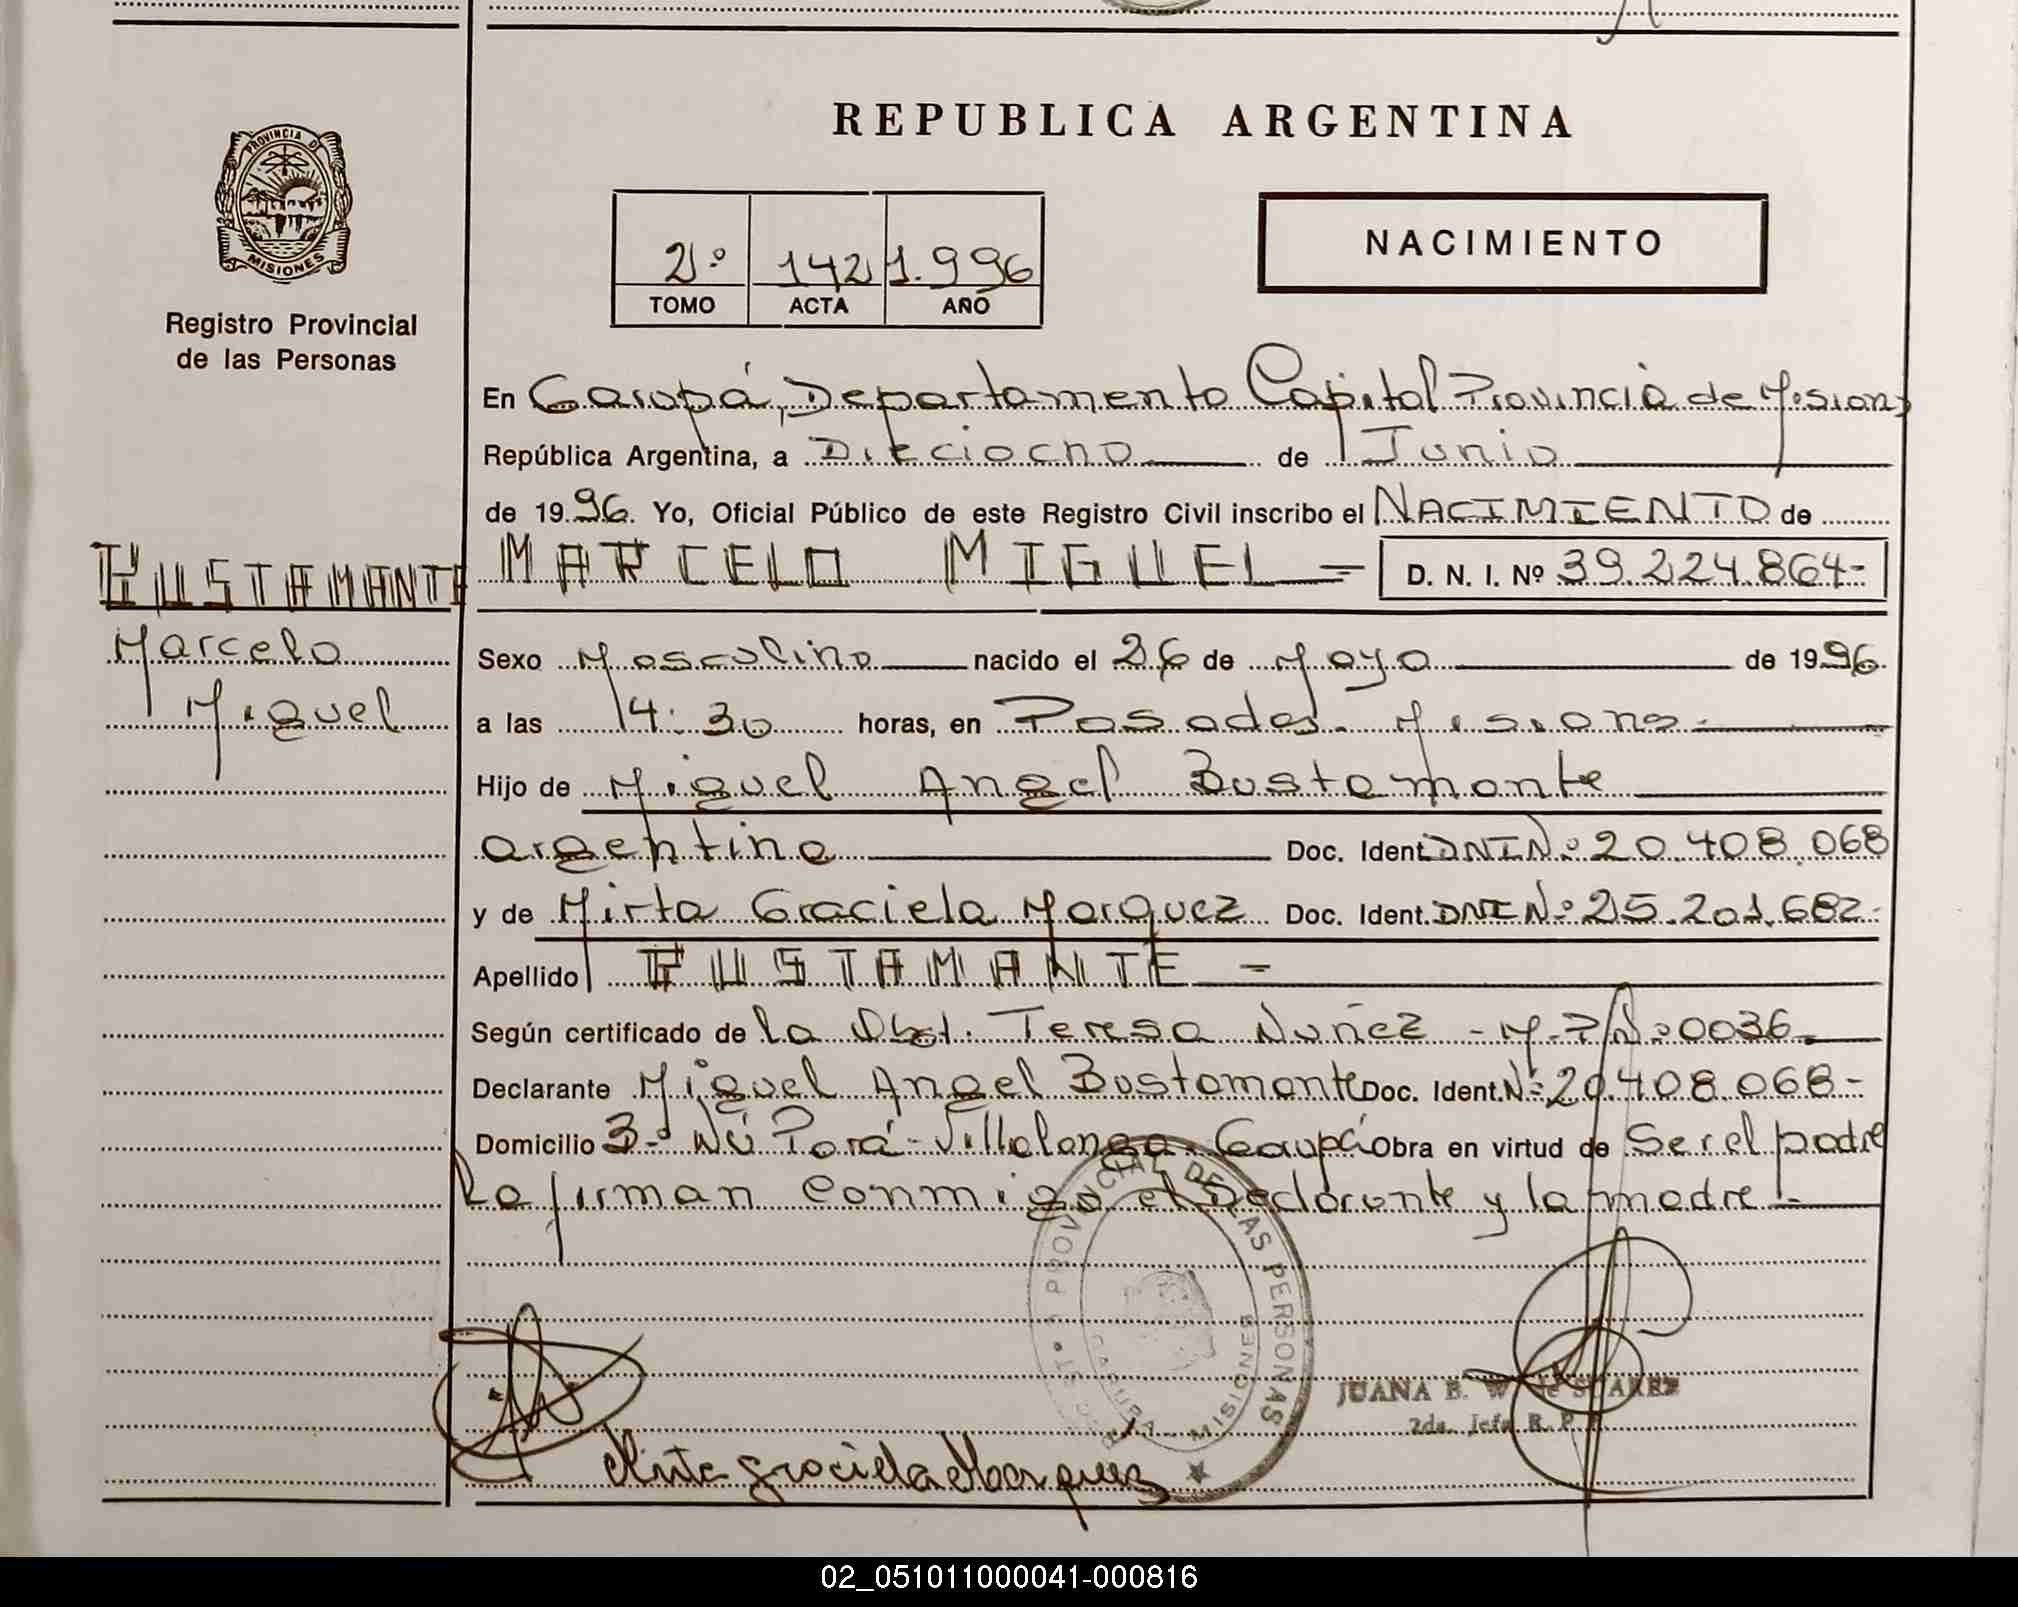 REPUBLICA ARGENTINA
PROVINCIA DE
MISIONES
Registro Provincial
de las Personas
2º 142 1.996
TOMO ACTA AÑO
NACIMIENTO
En Garupá, Departamento Capital Provincia de Misiones
República Argentina, a Dieciocho de Junio
de 1996. Yo, Oficial Público de este Registro Civil inscribo el NACIMIENTO de
BUSTAMANTE
Marcelo
Miguel
MARCELO MIGUEL = D. N. I. Nº 39.224.864-
Sexo Masculino nacido el 26 de Mayo de 1996.
a las 14:30 horas, en Posadas - Misiones -
Hijo de Miguel Angel Bustamante
argentino Doc. Ident. DNI Nº 20.408.068
y de Mirta Graciela Marquez Doc. Ident. DNI Nº 25.201.682-
Apellido BUSTAMANTE =
Según certificado de la Obst. Teresa Nuñez - M.P. Nº 0036
Declarante Miguel Angel Bustamante Doc. Ident. Nº 20.408.068-
Domicilio Bº Ñú Porá - Villalonga - Garupá Obra en virtud de Ser el padre
La firman conmigo el Declarante y la madre -
PROVINCIAL DE LAS PERSONAS
GARUPA MISIONES
JUANA B. W. de SUAREZ
2da. Jefa R. P. P.
Mirta graciela Marquez
02_051011000041-000816